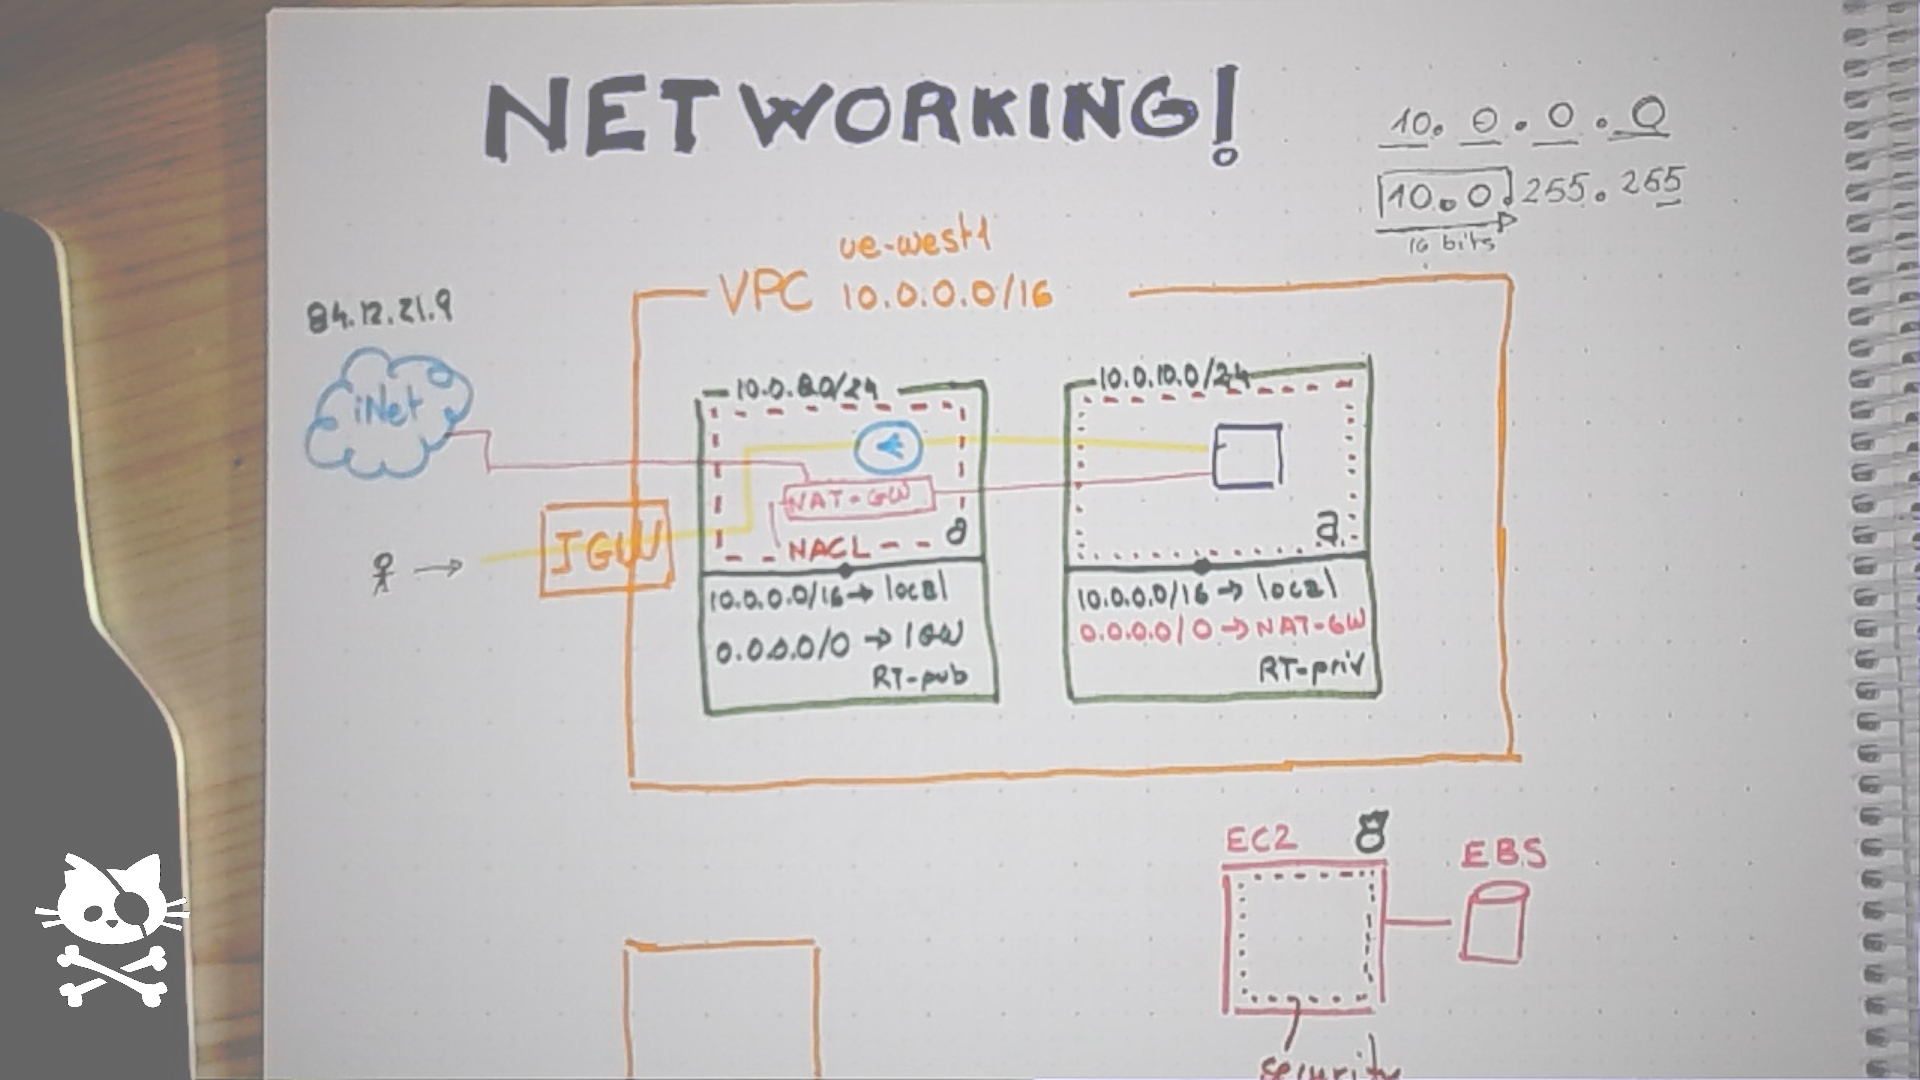 NETWORKING!
10.0.0.0
10.0.255.255
16 bits
ue-west1
VPC 10.0.0.0/16
84.12.21.9
iNet
10.0.10.0/24
NAT-GW
IGW
NACL
a
a
10.0.0.0/16→ local
0.0.0.0/0 → IGW
RT-pub
10.0.0.0/16 → local
0.0.0.0/0 → NAT-GW
RT-priv
EC2
8
EBS
security